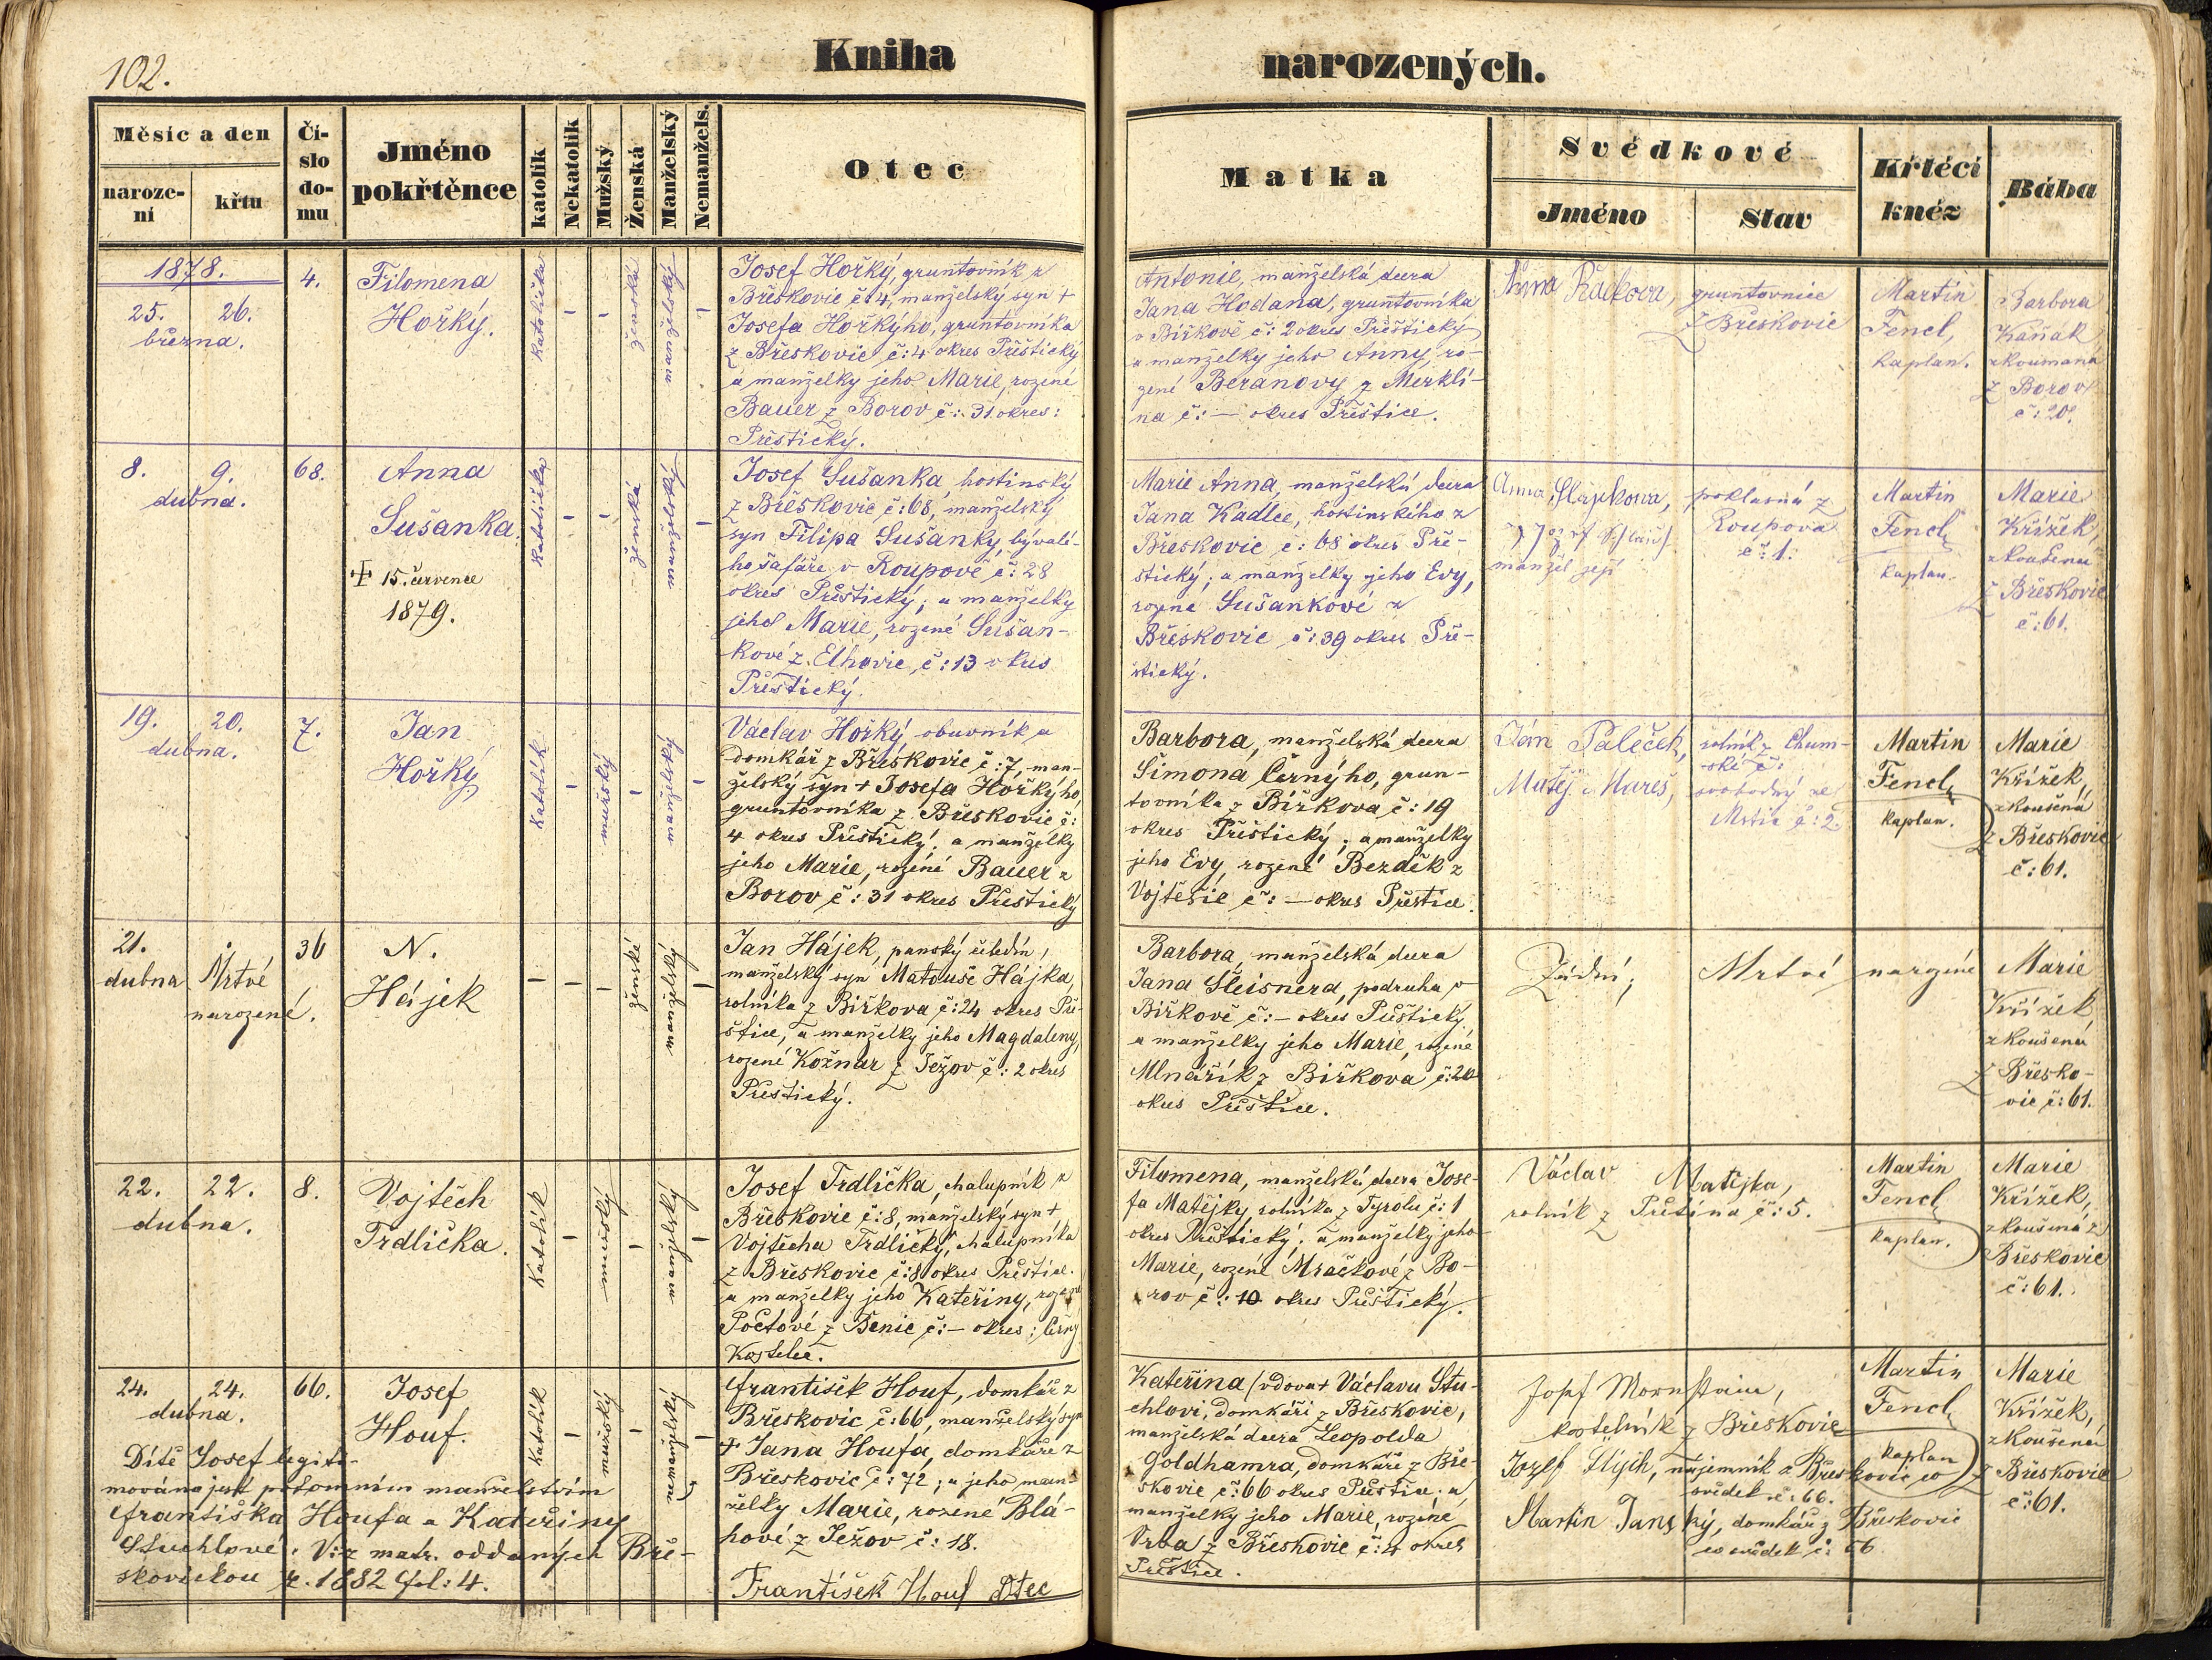 102.
Kniha narozených.
Měsíc a den
naroze-
ní
křtu
Čí-
slo
do-
mu
Jméno
pokřtěnce
katolík
Nekatolík
Mužský
Ženská
Manželský
Nemanžels.
Otec
Matka
Svědkové
Jméno
Stav
Křtěcí
kněz
Bába
1878.
25. 26.
března.
4.
Filomena
Hořký.
katolička
-
-
ženská
manželský
-
Josef Hořký, gruntovník z
Břeskovic č: 4, manželský syn +
Josefa Hořkýho, gruntovníka
z Břeskovic č: 4 okres Přeštický
a manželky jeho Marie, rozené
Bauer z Borov č: 31. okres:
Přeštický.
Antonie, manželská dcera
Jana Hodana, gruntovníka
v Biřkově č: 2 okres Přeštický
a manželky jeho Anny, ro-
zené Beranovy z Merklí-
na č: — okres Přeštice.
Anna
gruntovnice
z Břeskovic
Martin
Fencl,
kaplan.
Barbora
Kaňák
zkoumaná
z Borov
č: 20.
8. 9.
dubna.
68.
Anna
Sušanka.
+ 15. července
1879.
katolička
-
-
ženská
manželský
-
Josef Sušanka, hostinský
z Břeskovic č: 68, manželský
syn Filipa Sušanky, bývalé-
ho šafáře v Roupově č: 28
okres Přeštický; a manželky
jeho Marie, rozené Sušan-
kové z Elhovic, č: 13 okres
Přeštický.
Marie Anna, manželská dcera
Jana Kadlce, hostinského z
Břeskovic č: 68 okres Pře-
štický; a manželky jeho Evy,
rozené Sušankové z
Břeskovic č: 39 okres Pře-
štický.
Anna Slapkova,
manžel její
poklasná z
Roupova
č: 1.
Martin
Fencl,
kaplan.
Marie
Křížek,
zkoušená
z Břeskovic
č: 61.
19. 20.
dubna.
7.
Jan
Hořký
katolík
-
mužský
-
manželský
-
Václav Hořký, obuvník a
domkář z Břeskovic č: 7, man-
želský syn + Josefa Hořkýho,
gruntovníka z Břeskovic č:
4 okres Přeštický; a manželky
jeho Marie, rozené Bauer z
Borov č: 31 okres Přeštický
Barbora, manželská dcera
Simona Černýho, grun-
tovníka z Biřkova č: 19
okres Přeštický; a manželky
jeho Evy, rozené Bezděk z
Vojtěšic č: — okres Přeštice.
Ján Paleček,
Matěj Mareš,
rolník z Chum-
ské č:
svobodný ze
Mstic č: 2.
Martin
Fencl,
kaplan.
Marie
Křížek,
zkoušená
z Břeskovic
č: 61.
21.
dubna
Mrtvé
narozené.
36
N.
Hájek
-
-
-
ženské
manželský
-
Jan Hájek, panský čeledín,
manželský syn Matouše Hájka,
rolníka z Biřkova č: 24 okres Pře-
štice, a manželky jeho Magdaleny,
rozené Kožnar z Ježov č: 2 okres
Přeštický.
Barbora, manželská dcera
Jana Šleisnera, podruha v
Biřkově č: - okres Přeštický
a manželky jeho Marie, rozené
Mlnářík z Biřkova č: 20
okres Přeštice.
Žádní;
Mrtvé narozené
Marie
Křížek
zkoušená
z Břesko-
vic č: 61.
22. 22.
dubna.
8.
Vojtěch
Trdlička.
Katolík
-
mužský
-
manželský
-
Josef Trdlička, chalupník z
Břeskovic č: 8, manželský syn +
Vojtěcha Trdličky, chalupníka
z Břeskovic č: 8 okres Přeštice.
a manželky jeho Kateřiny, rozené
Počtové z Benic č: - okres: Černý
Kostelec.
Filomena, manželská dcera Jose-
fa Matějky rolníka z Tyrolu č: 1
okres Přeštický; a manželky jeho
Marie, rozené Mračkové z Bo-
rov č: 10 okres Přeštický.
Václav Matějka,
rolník z Přetína č: 5.
Martin
Fencl,
kaplan.
Marie
Křížek,
zkoušená z
Břeskovic
č: 61.
24. 24.
dubna.
66.
Josef
Houf.
Katolík
-
mužský
-
manželský
-
Dítě Josef legiti-
mováno jest potomním manželstvím
Františka Houfa a Kateřiny
Stuchlové. Viz matr. oddaných Bře-
skovickou r. 1882 fol: 4.
František Houf, domkář z
Břeskovic č: 66, manželský syn
+ Jana Houfa, domkáře z
Břeskovic č: 72; a jeho man-
želky Marie, rozené Blá-
hové z Ježov č: 18.
František Houf Otec
Kateřina (vdova + Václavu Stu-
chlovi, domkáři z Břeskovic,
manželská dcera Leopolda
Goldhamra, domkáře z Bře-
skovic č: 66 okres Přeštice. a
manželky jeho Marie, rozené
Vrba z Břeskovic č: 4 okres
Přeštice.
Josef Mornstein,
kostelník z Břeskovic
Jozef Slych, nájemník z Břeskovic co
svědek č: 66.
Martin Janský, domkář z Břeskovic
co svědek č: 66
Martin
Fencl,
kaplan
Marie
Křížek,
zkoušená
z Břeskovic
č: 61.